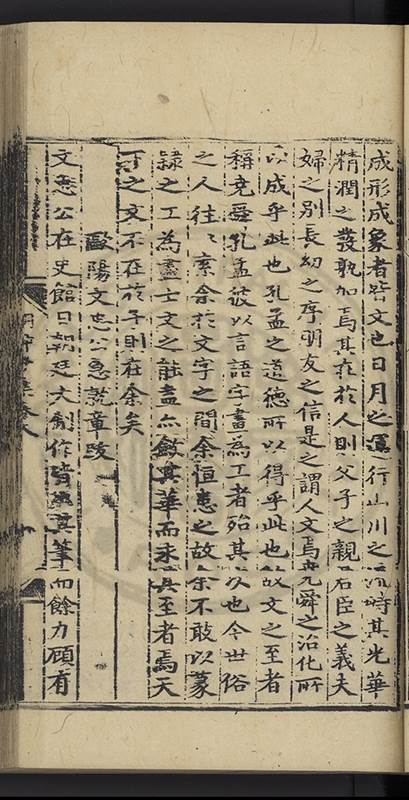 成形成象者皆文也日月之運行山川之流峙其光華
精潤之發孰加焉其在於人則父子之親君臣之義夫
婦之別長幼之序朋友之信是之謂人文焉堯舜之治化所
以成乎此也孔孟之道德所以得乎此也故文之至者
稱堯舜孔孟彼以言語字畫為工者殆其次也今世俗
之人往〻索余於文字之間余恒患之故余不敢以篆
隸之工為盡士文之能盡亦斂其華而求其至者焉天
下之文不在於予則在余矣
歐陽文忠公急就章跋
文忠公在史館日朝廷大制作皆其筆而餘力顧有